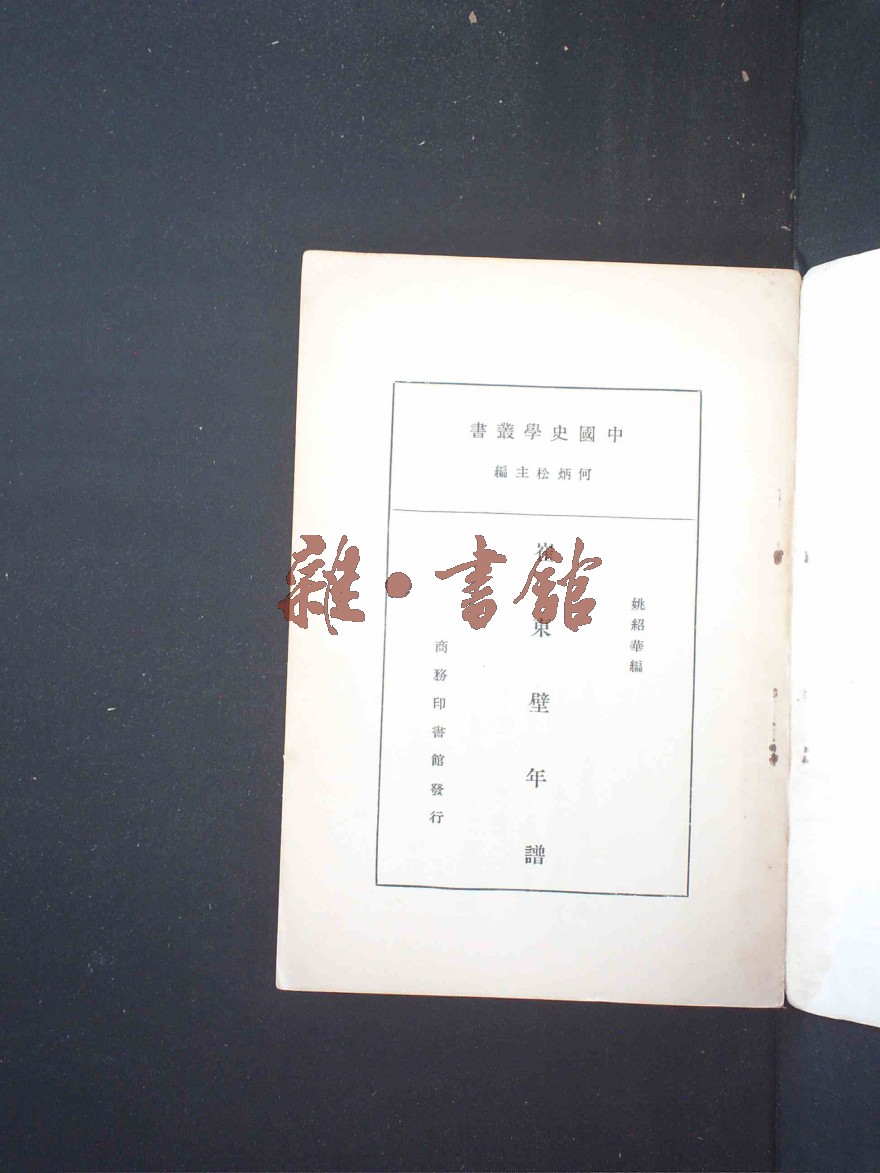 中國史學叢書
何炳松主編
姚紹華編
崔東壁年譜
商務印書館發行
雜·書館